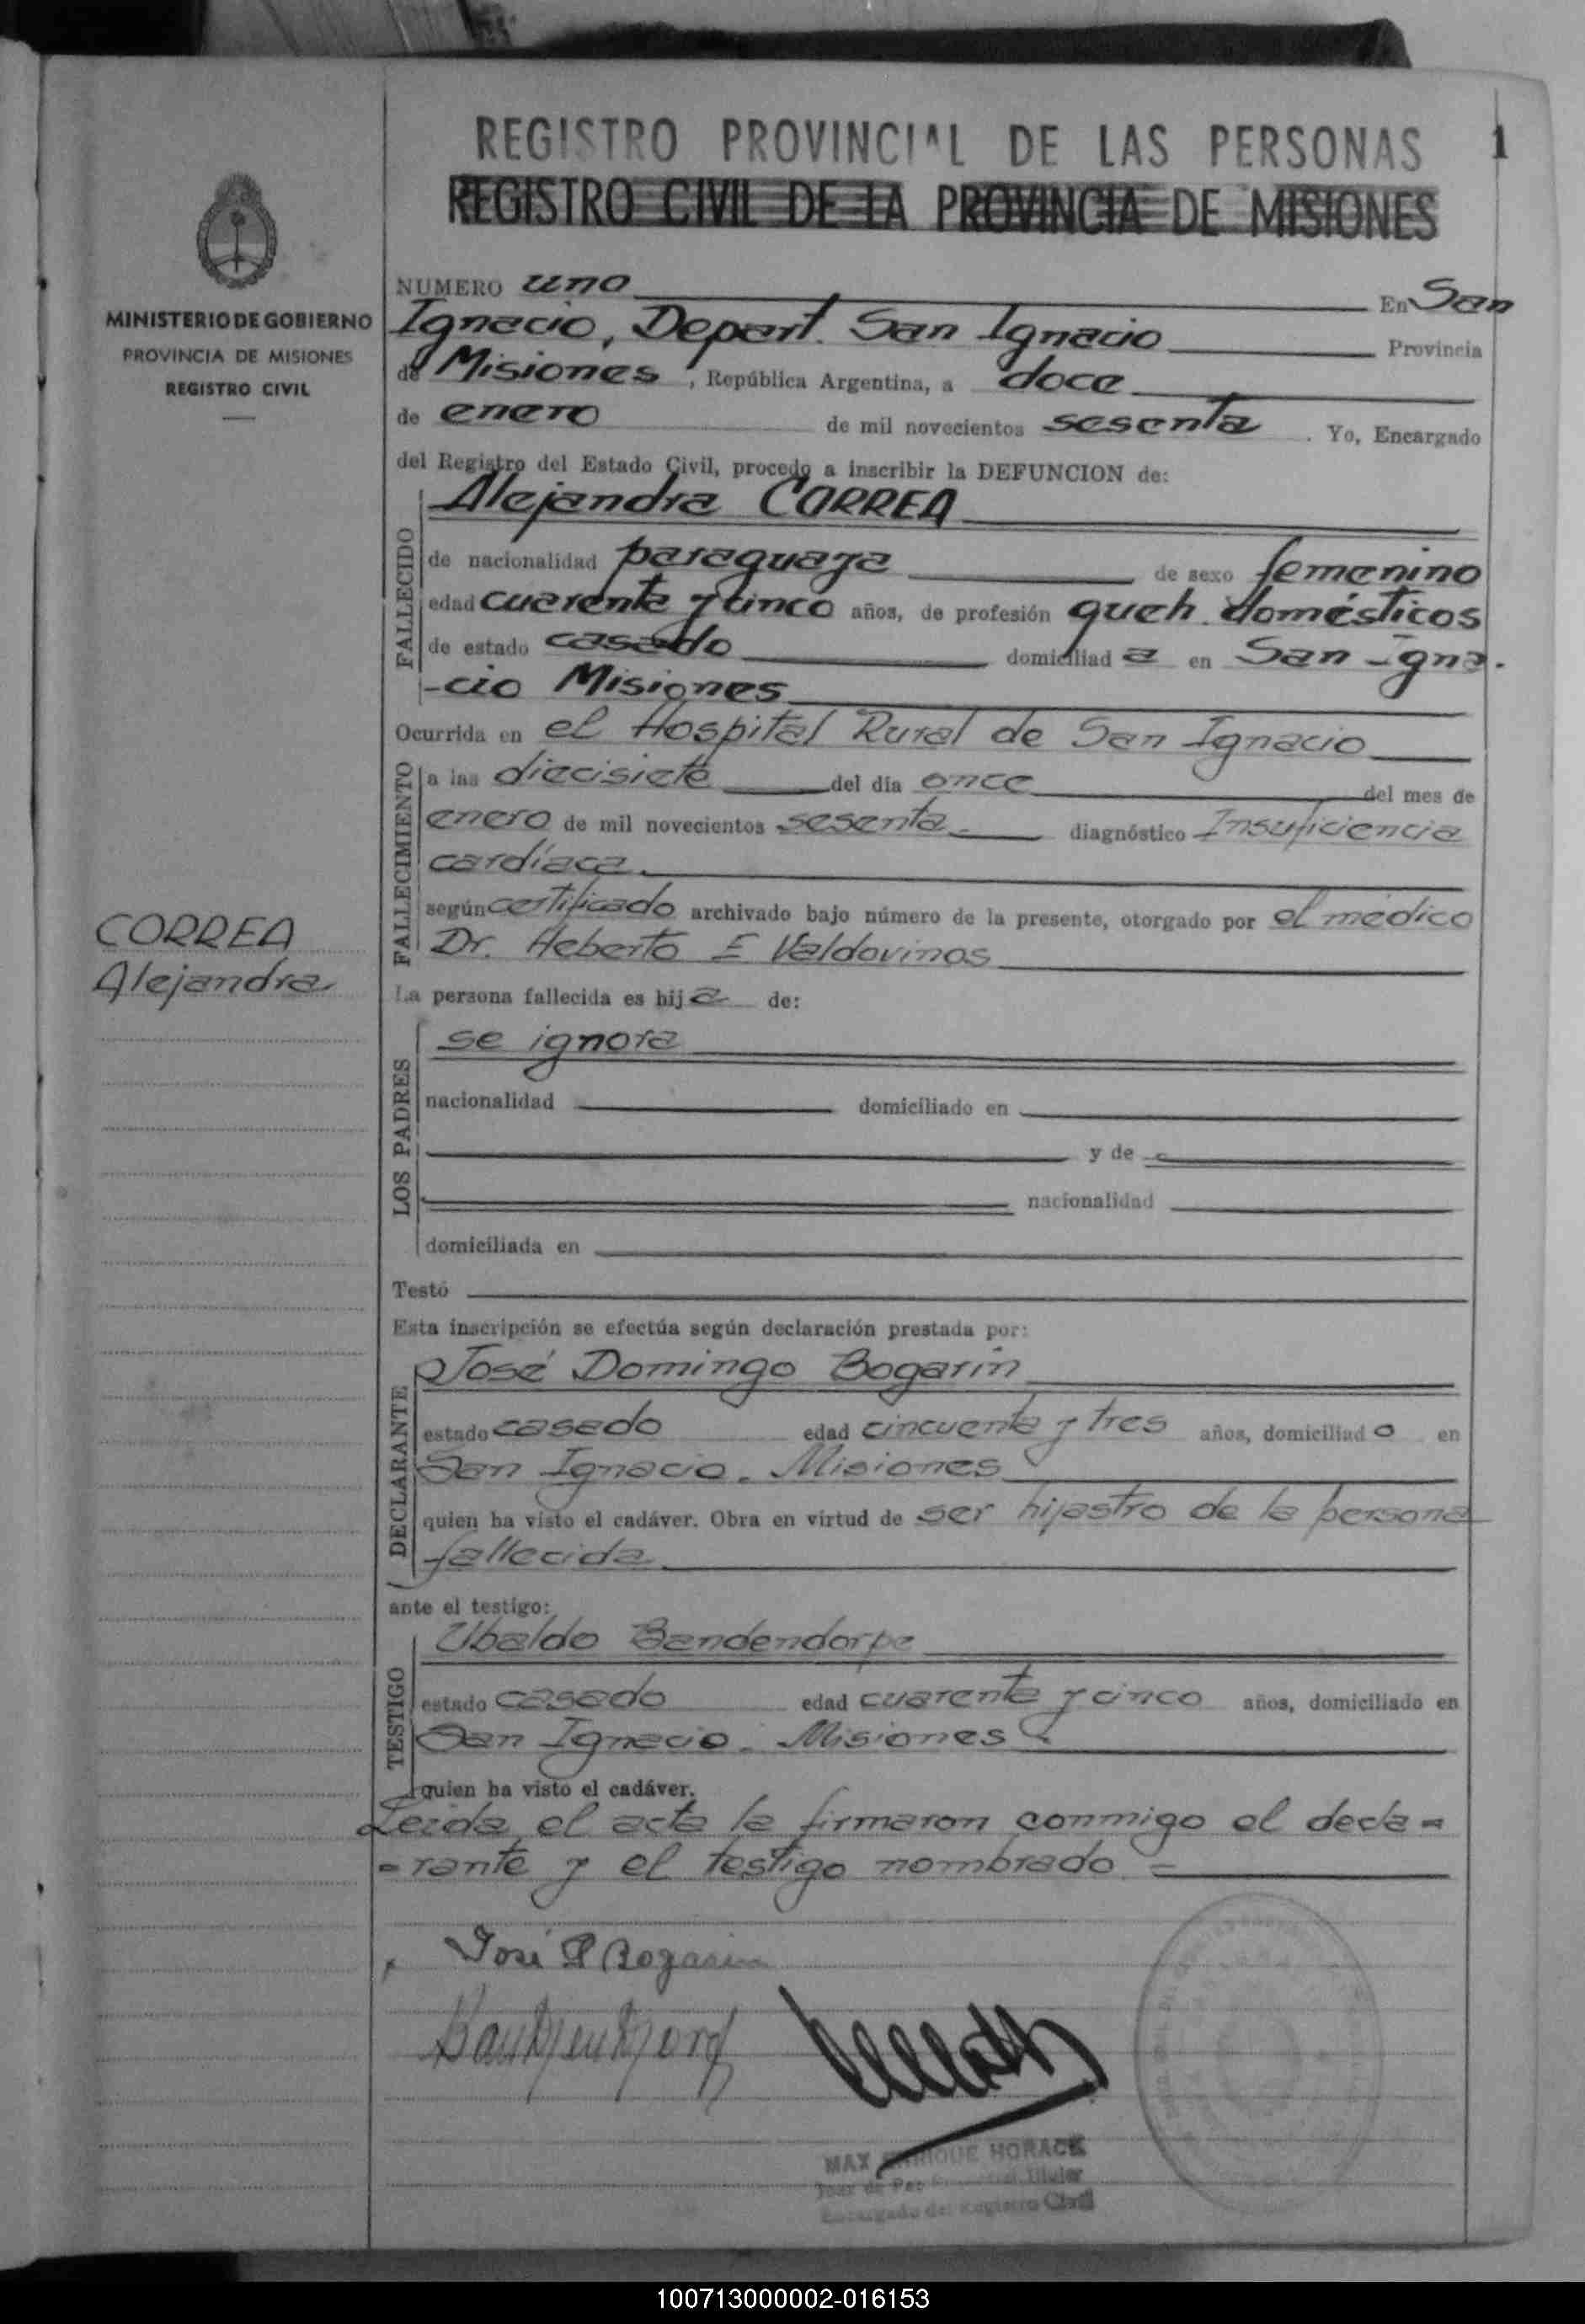 REGISTRO PROVINCIAL DE LAS PERSONAS 1
REGISTRO CIVIL DE LA PROVINCIA DE MISIONES
MINISTERIO DE GOBIERNO
PROVINCIA DE MISIONES
REGISTRO CIVIL
CORREA
Alejandra
NUMERO uno En San
Ignacio, Depart. San Ignacio Provincia
de Misiones, República Argentina, a doce
de enero de mil novecientos sesenta. Yo, Encargado
del Registro del Estado Civil, procedo a inscribir la DEFUNCION de:
FALLECIDO
Alejandra CORREA
de nacionalidad paraguaya de sexo femenino
edad cuarenta y cinco años, de profesión queh. domésticos
de estado casado domiciliad a en San Igna-
-cio Misiones
Ocurrida en el Hospital Rural de San Ignacio
FALLECIMIENTO
a las diecisiete del día once del mes de
enero de mil novecientos sesenta.- diagnóstico Insuficiencia
cardíaca.
según certificado archivado bajo número de la presente, otorgado por el médico
Dr. Heberto E Valdovinos
La persona fallecida es hij a de:
LOS PADRES
se ignora
nacionalidad domiciliado en
y de
nacionalidad
domiciliada en
Testó
Esta inscripción se efectúa según declaración prestada por:
DECLARANTE
José Domingo Bogarin
estado casado edad cincuenta y tres años, domiciliad o en
San Ignacio. Misiones
quien ha visto el cadáver. Obra en virtud de ser hijastro de la persona
fallecida
ante el testigo:
TESTIGO
Ubaldo Bandendorpe
estado casado edad cuarenta y cinco años, domiciliado en
San Ignacio. Misiones
quien ha visto el cadáver.
Leída el acta la firmaron conmigo el decla=
=rante y el testigo nombrado =
José D Bogarin
MAX ENRIQUE HORACK
Juez de Paz Titular
Encargado del Registro Civil
100713000002-016153